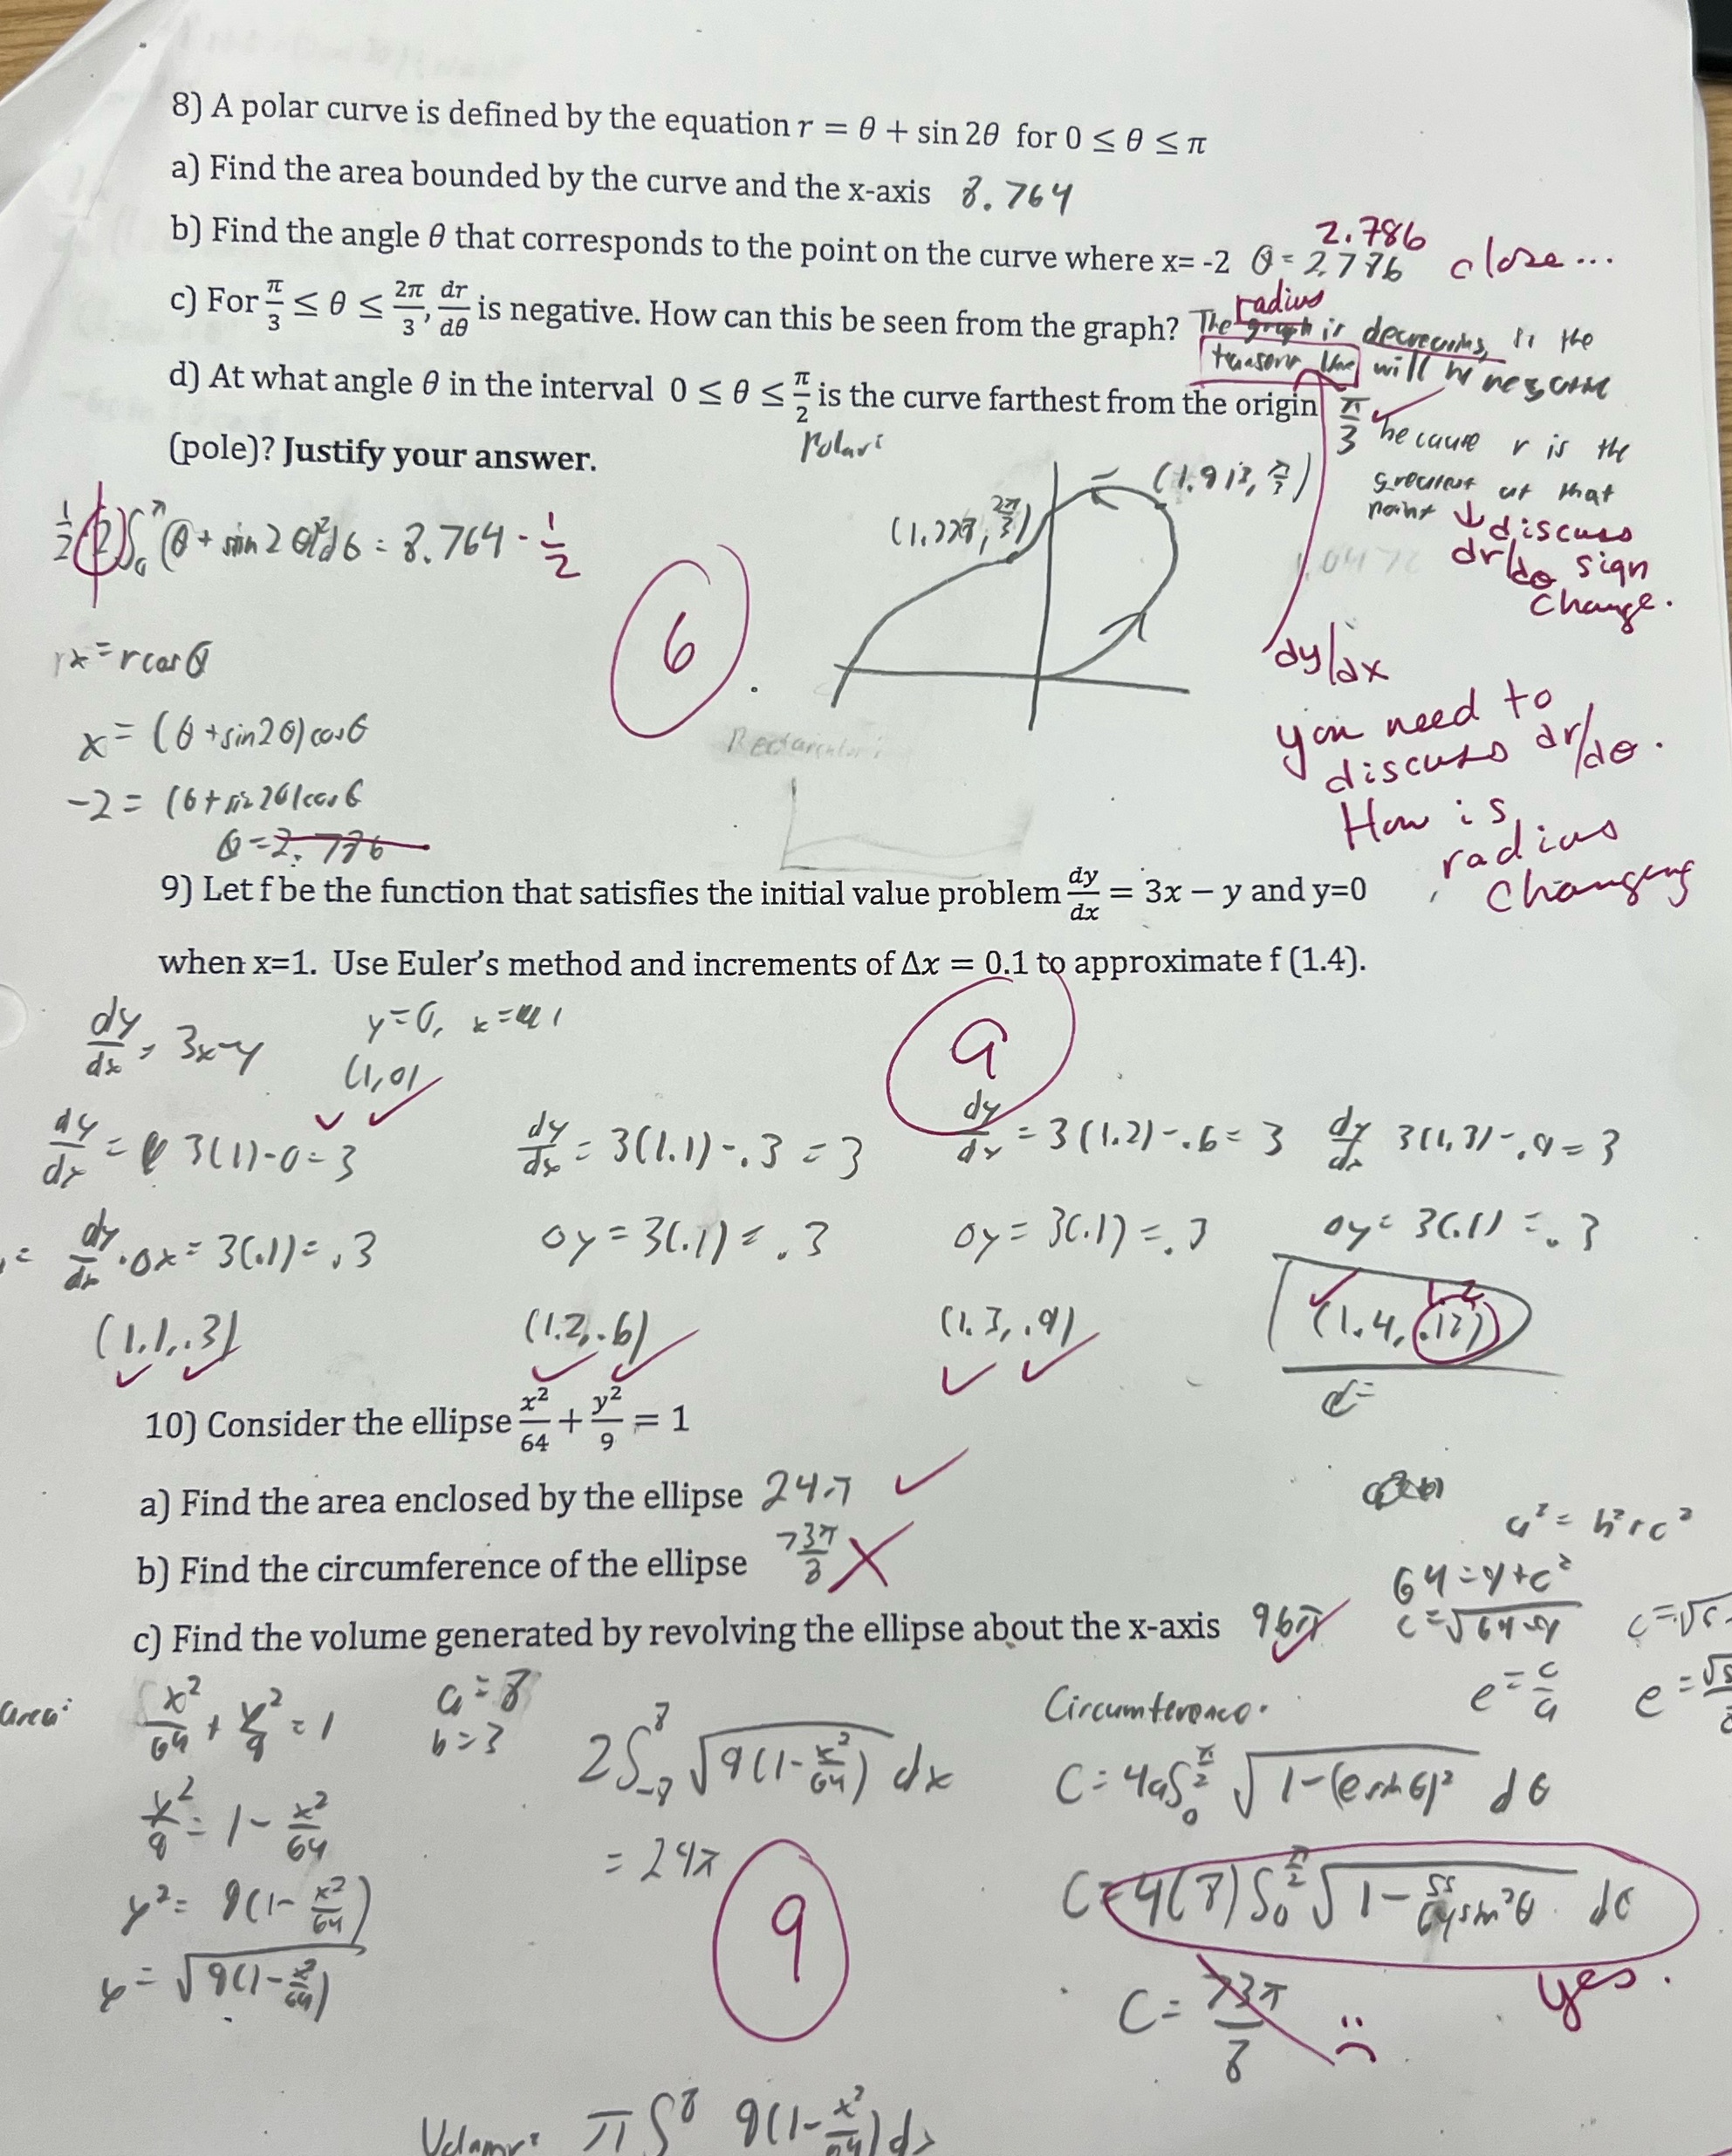 8) A polar curve is defined by the equation r = θ + sin 2θ for 0 ≤ θ ≤ π
a) Find the area bounded by the curve and the x-axis 8.764
2.786
b) Find the angle θ that corresponds to the point on the curve where x= -2 θ = 2.776 close...
radius
c) For π/3 ≤ θ ≤ 2π/3, dr/dθ is negative. How can this be seen from the graph? The graph is decreasing, so the
line will be negative
d) At what angle θ in the interval 0 ≤ θ ≤ π/2 is the curve farthest from the origin π/3 because r is the
(pole)? Justify your answer. Polar: greatest at that
point ↓ discuss
dr/dθ sign
change.
(1.913, π/3)
(1.228, 2π/3)
1/2 (2) ∫₀^π (θ + sin 2θ)² dθ = 8.764 · 1/2
6
x = r cos θ
dy/dx
x = (θ + sin2θ) cosθ
you need to
discuss dr/dθ.
-2 = (θ + sin 2θ) cos θ
How is
θ = 2.776
radius
changing
Rectangular:
9) Let f be the function that satisfies the initial value problem dy/dx = 3x − y and y=0
when x=1. Use Euler's method and increments of Δx = 0.1 to approximate f (1.4).
dy/dx = 3x-y y=0, x=1
(1,0)
9
dy/dx = 3(1)-0=3 dy/dx = 3(1.1)-.3 = 3 dy/dx = 3(1.2)-.6= 3 dy/dx 3(1.3)-.9= 3
= dy/dx · Δx = 3(.1)= .3 Δy = 3(.1) = .3 Δy = 3(.1) = .3 Δy = 3(.1) = .3
1.2
(1.1, .3) (1.2, .6) (1.3, .9) (1.4, .12)
10) Consider the ellipse x²/64 + y²/9 = 1
a) Find the area enclosed by the ellipse 24π
b) Find the circumference of the ellipse 73π/8
c) Find the volume generated by revolving the ellipse about the x-axis 96π
a² = b²+c²
64 = 9+c²
c = √64-9
c = √
e = c/a e =
area: x²/64 + y²/9 = 1 a = 8
b = 3
y²/9 = 1 - x²/64
y² = 9(1 - x²/64)
y = √9(1 - x²/64)
2∫₋₈⁸ √9(1 - x²/64) dx
= 24π
9
Circumference:
C = 4a∫₀^π/2 √1-(e sin θ)² dθ
C = 4(8) ∫₀^π/2 √1 - 55/64 sin²θ dθ
yes.
C = 73π/8
Volume: π ∫⁸ 9(1 - x²/64) dx